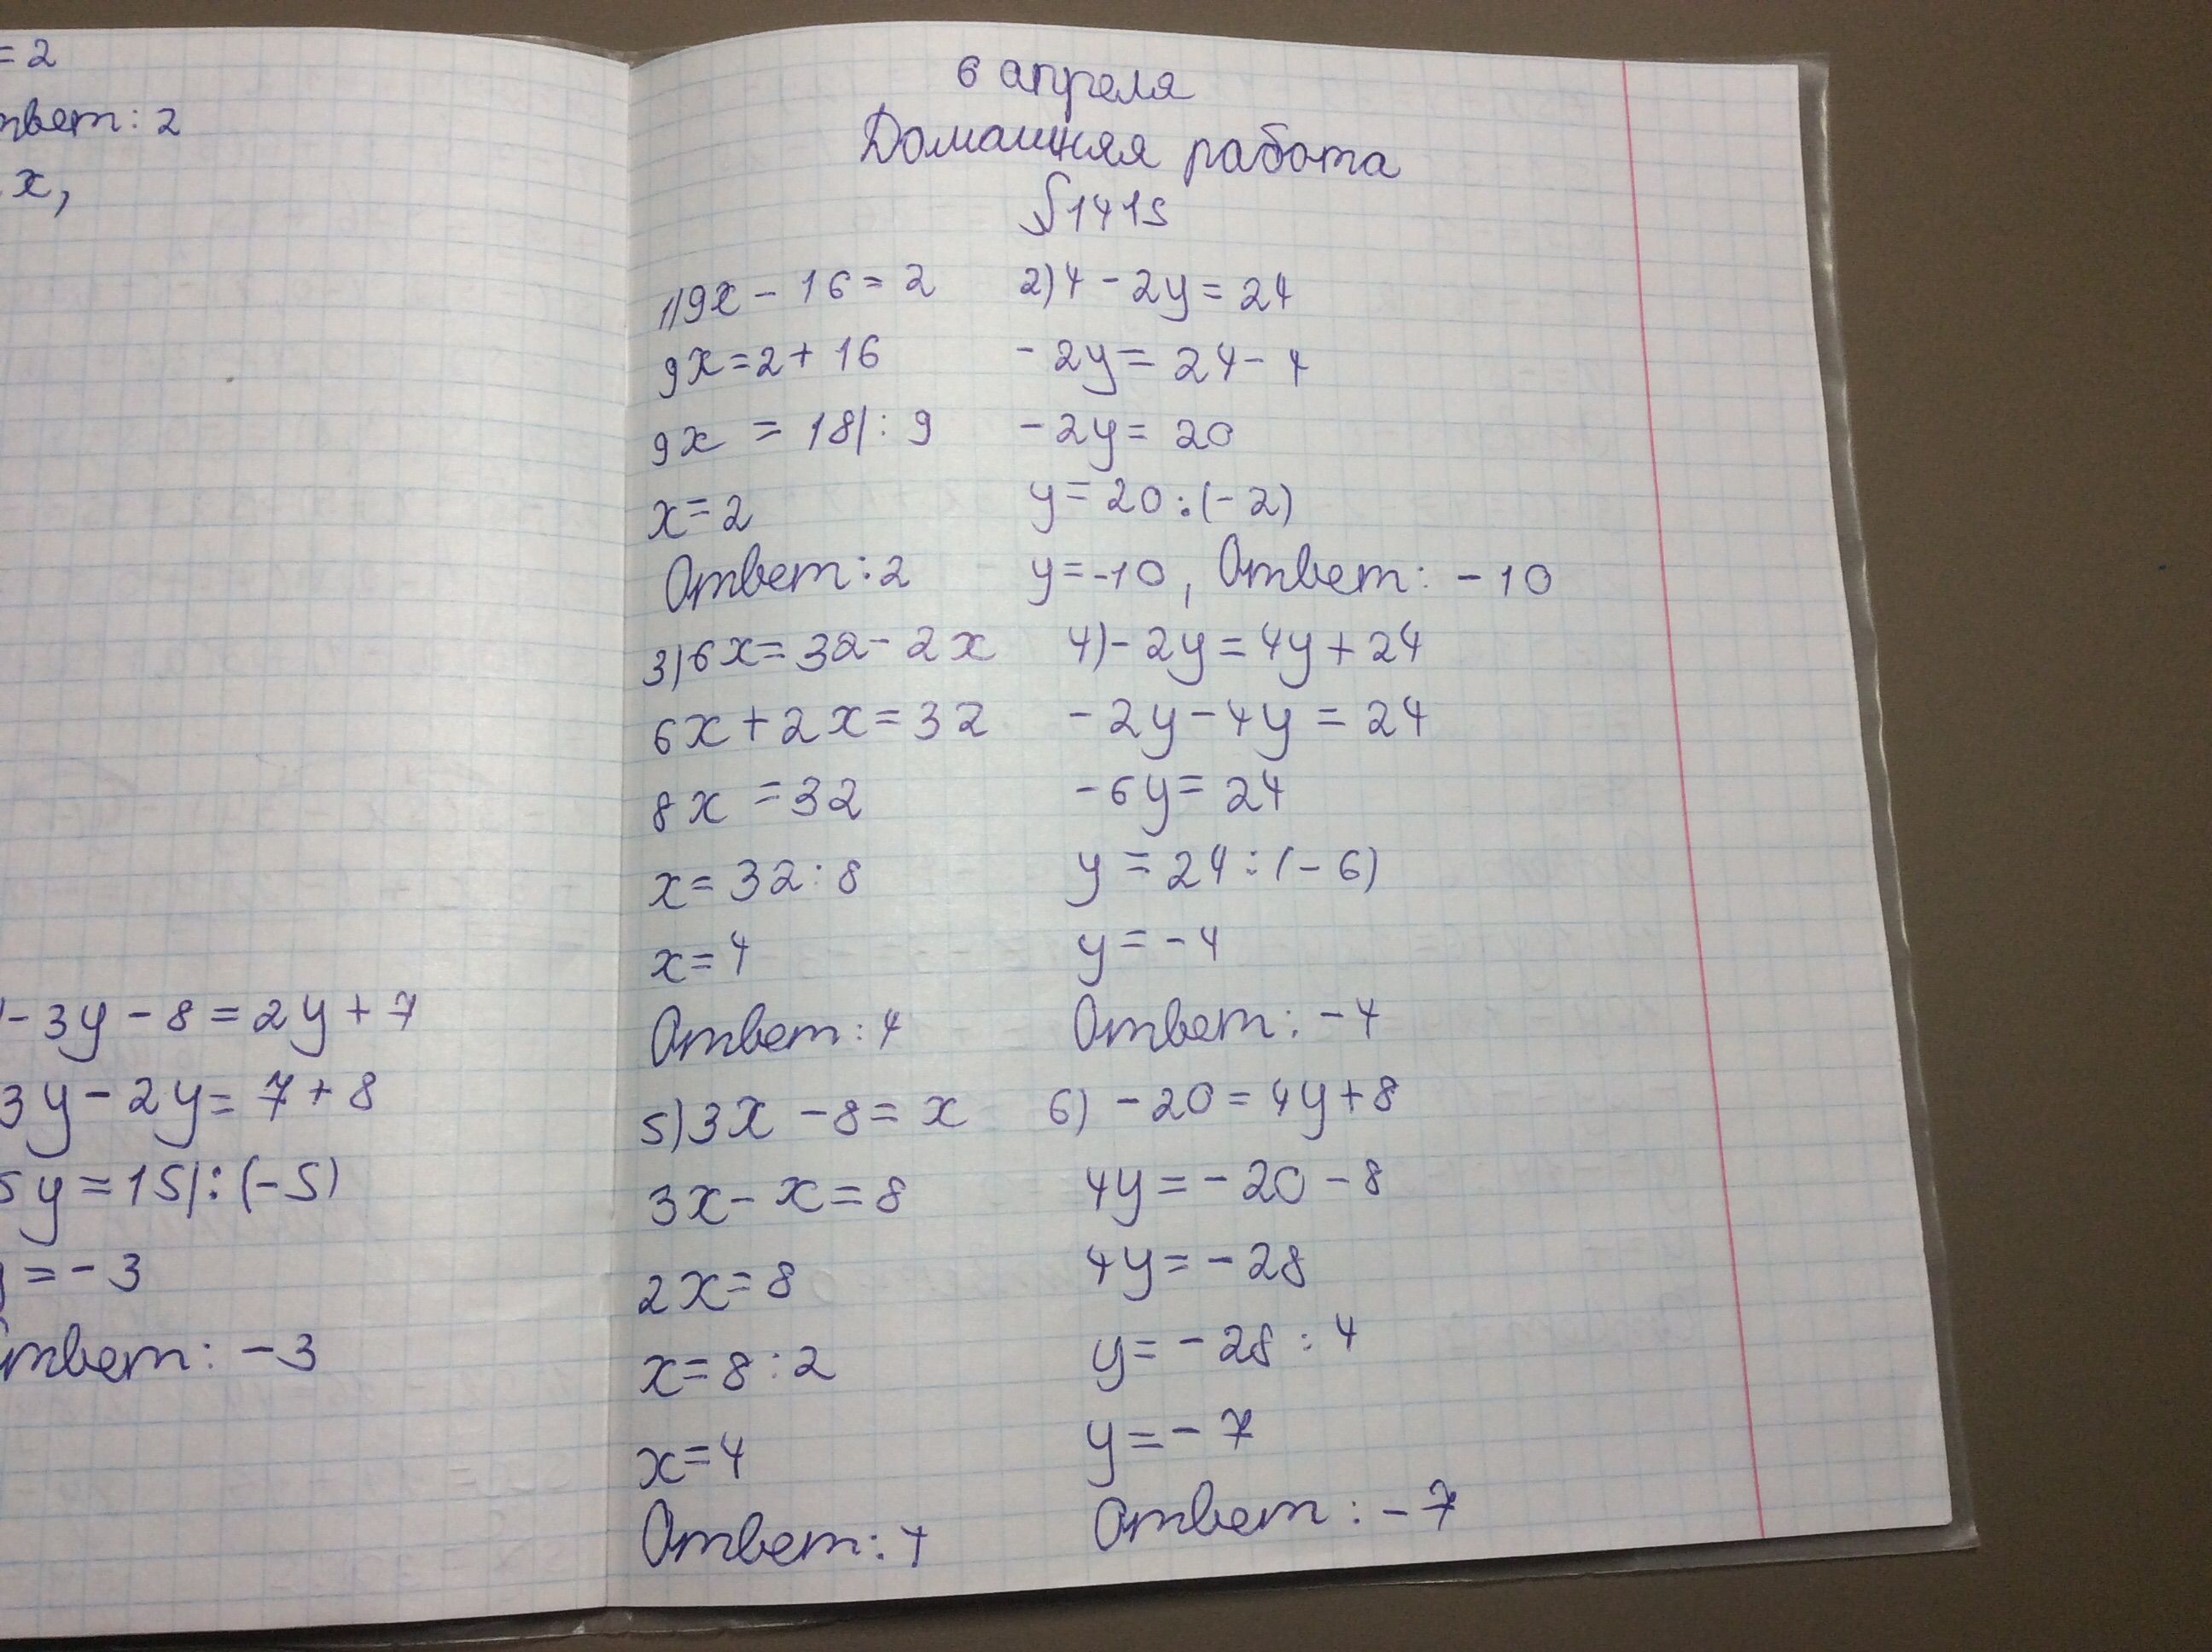 = 2
твет: 2
x,
- 3y - 8 = 2y + 7
3y - 2y = 7 + 8
5y = 15 |: (-5)
y = - 3
твет: - 3
6 апреля
Домашняя работа
§1415
1) 9x - 16 = 2
9x = 2 + 16
9x = 18 |: 9
x = 2
Ответ: 2
2) 4 - 2y = 24
- 2y = 24 - 4
- 2y = 20
y = 20 : (- 2)
y = -10, Ответ: - 10
3) 6x = 32 - 2x
6x + 2x = 32
8x = 32
x = 32 : 8
x = 4
Ответ: 4
4) - 2y = 4y + 24
- 2y - 4y = 24
- 6y = 24
y = 24 : (- 6)
y = - 4
Ответ: - 4
5) 3x - 8 = x
3x - x = 8
2x = 8
x = 8 : 2
x = 4
Ответ: 4
6) - 20 = 4y + 8
4y = - 20 - 8
4y = - 28
y = - 28 : 4
y = - 7
Ответ: - 7